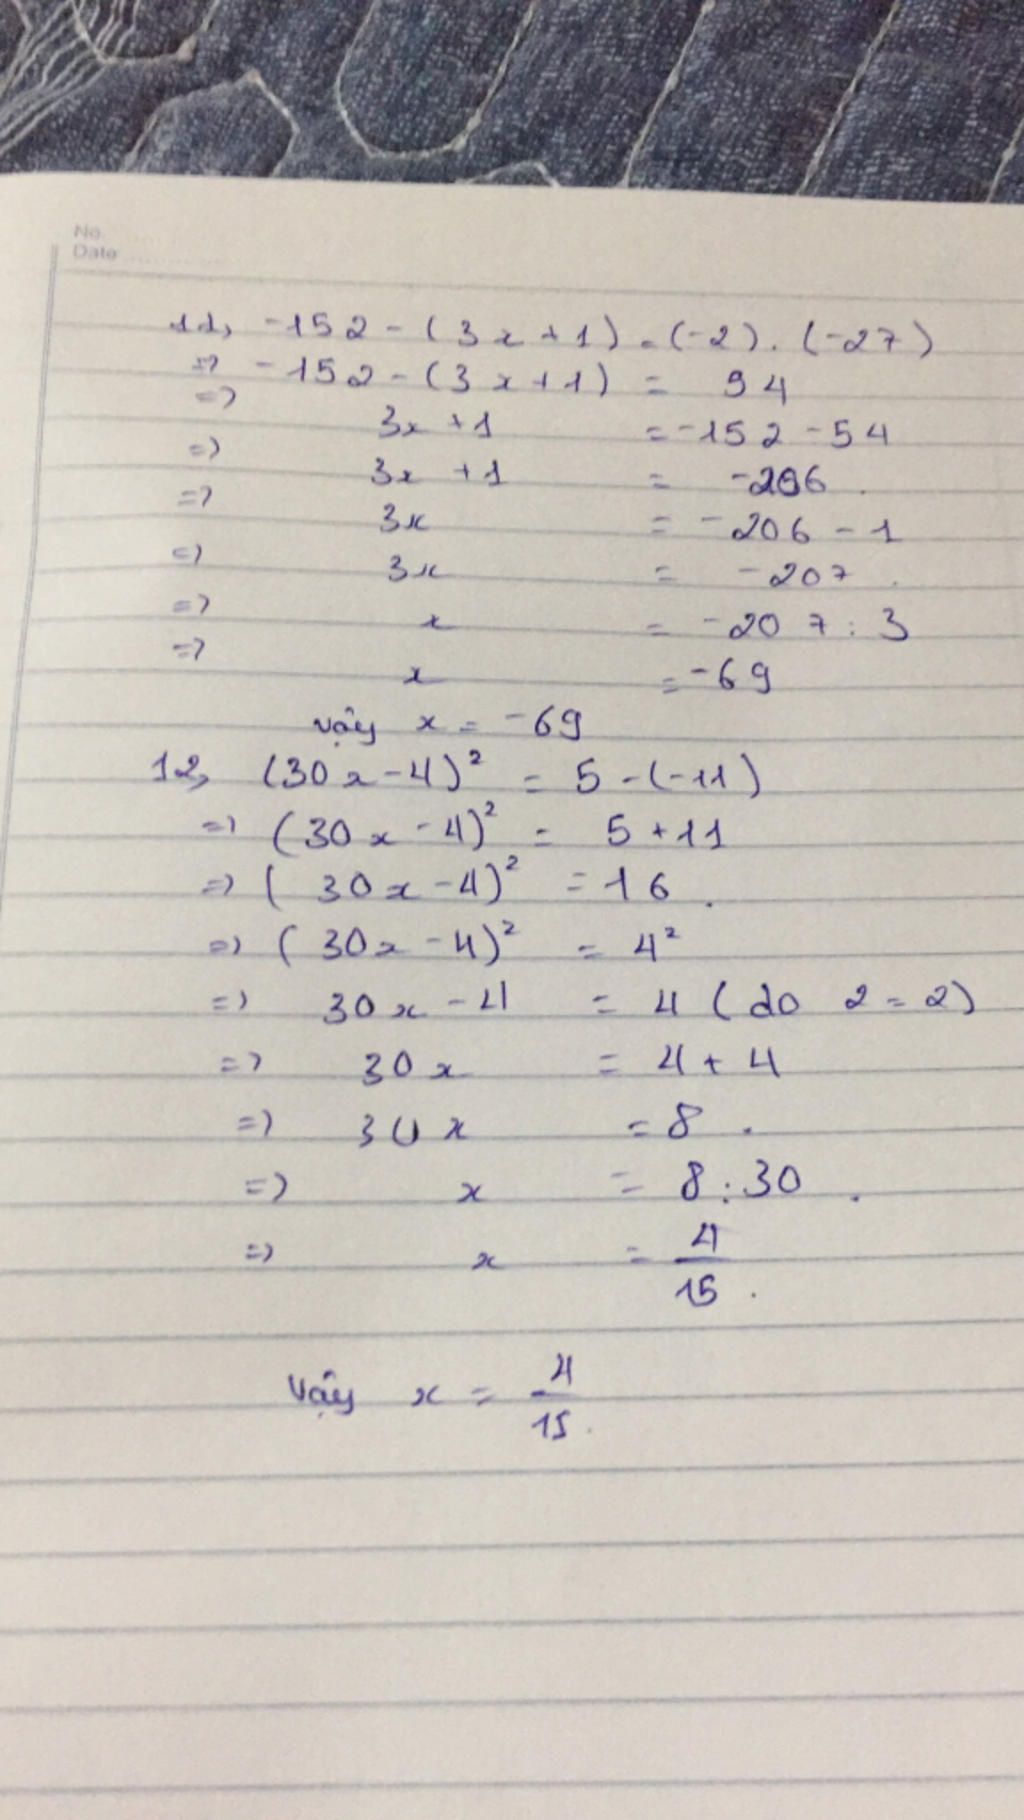 No.
Date
11, -152 - (3x + 1) = (-2). (-27)
=> -152 - (3x + 1) = 54
=> 3x + 1 = -152 - 54
=> 3x + 1 = -206.
=> 3x = -206 - 1
=> 3x = -207.
=> x = -207 : 3
=> x = -69
vậy x = -69
12, (30x - 4)² = 5 - (-11)
=> (30x - 4)² = 5 + 11
=> (30x - 4)² = 16.
=> (30x - 4)² = 4²
=> 30x - 4 = 4 (do 2 = 2)
=> 30x = 4 + 4
=> 30x = 8.
=> x = 8 : 30.
=> x = 4/15.
Vậy x = 4/15.